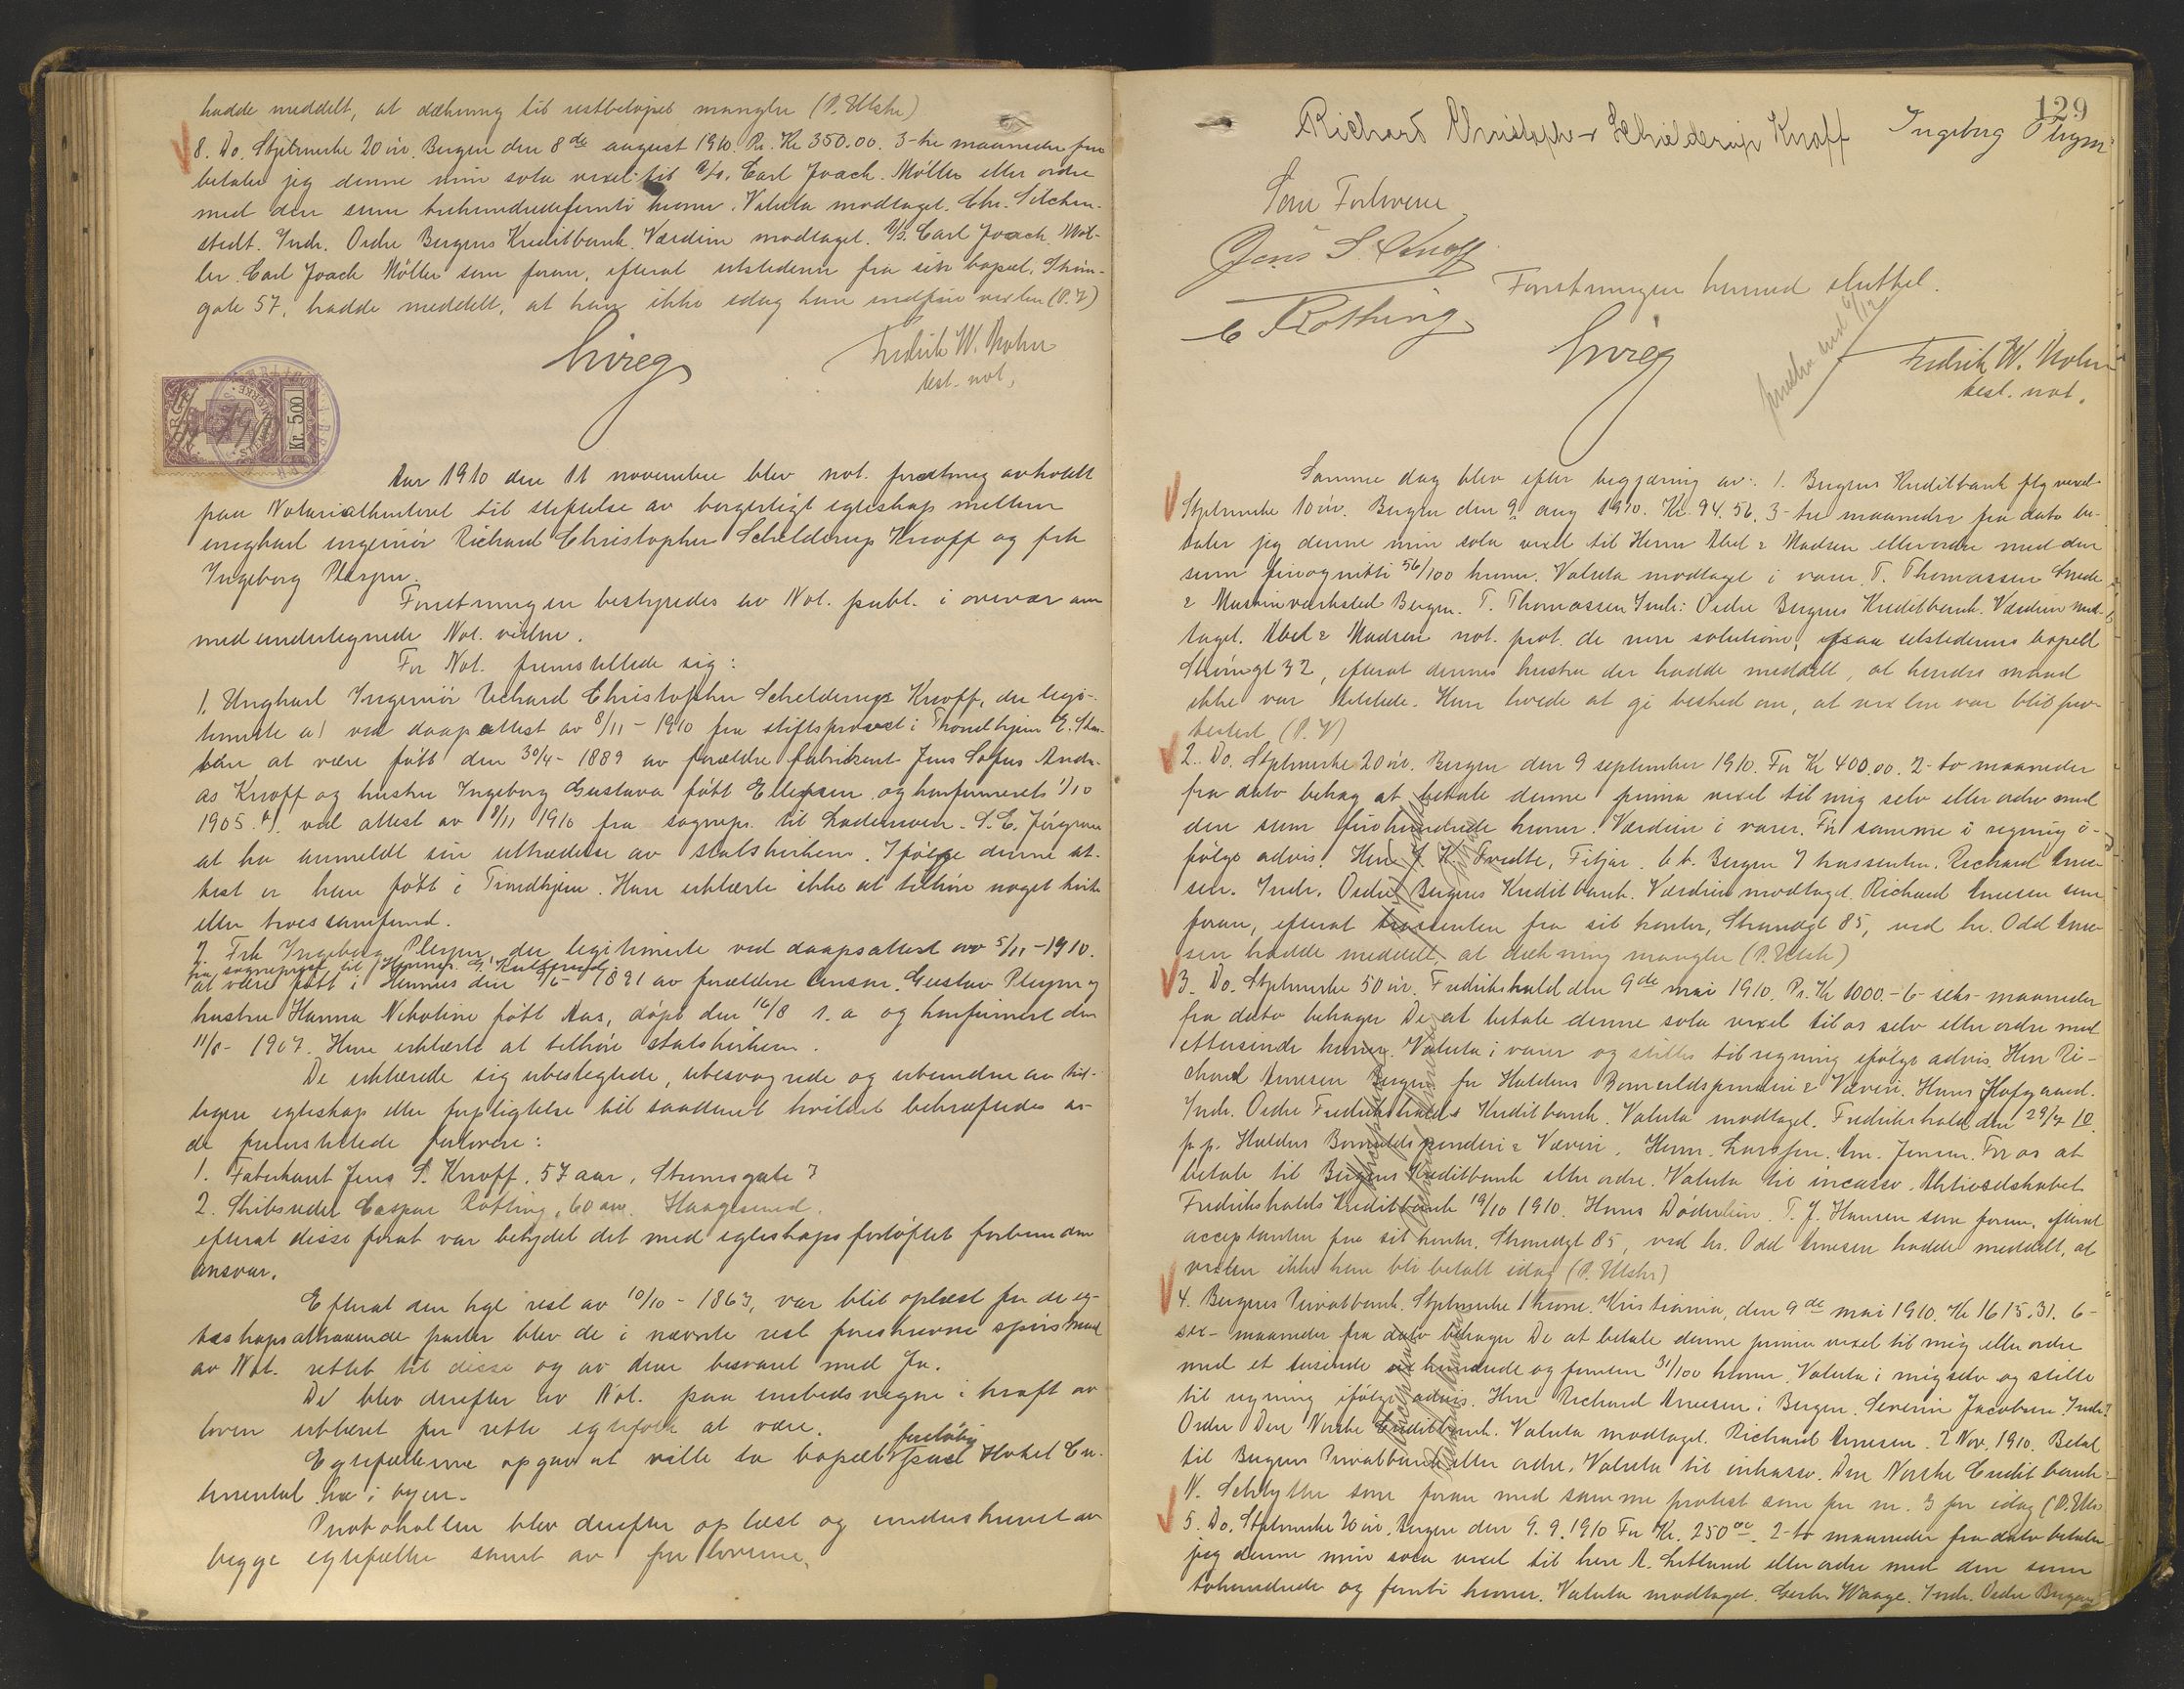 hadde meddelt, at dækning til restbeløpet mangler (P. Utskr)
8. Do. Stpltmerke 20 ør. Bergen den 8de august 1910. Pr. Kr 350.00. 3-tre maaneder fra
betaler jeg denne min sola vexel til A/S. Carl Joach. Møller eller ordre
med den sum trehundredefemti kroner. Valuta modtaget. Chr. Sitchen-
stedt. Indr. Ordre Bergens Kreditbank. Værdien modtaget. A/S. Carl Joach. Møl-
ler. Carl Joach Møller som foran, efterat utstederen fra sin bopæl, Strøm-
gate 57, hadde meddelt, at han ikke idag kan indfri vexlen (P. V)
Fredrik W. Mohn
best. not.
NORGE
Kr. 5.00
Aar 1910 den 11 november blev not. forretning avholdt
paa Notarialkontoret til stiftelse av borgerligt egteskap mellem
ungkarl ingeniør Richard Christopher Schelderup Knoff og frk
Ingeborg Plesjen.
Forretningen bestyredes av Not. publ. i overvær av
medundertegnede Not. vidne.
For Not. fremstillede sig:
1. Ungkarl Ingeniør Richard Christopher Schelderup Knoff, der legi-
timerte a) ved daapsattest av 8/11 - 1910 fra stiftsprovst i Trondhjem E.
at være født den 30/4 - 1889 av forældre fabrikant Jens Sofus Andre-
as Knoff og hustru Ingeborg Gustava født Ellefsen og konfirmeret 1/10
1905. b). ved attest av 9/11 1910 fra sognepr. til Lademoen. S. E. Jørgensen
at ha anmeldt sin uttrædelse av statskirken. Ifølge denne at-
test er han født i Trondhjem. Han erklærte ikke at tilhøre noget kirke
eller trossamfund.
2. Frk Ingeborg Plesjen, der legitimerte ved daapsattest av 5/11 - 1910.
fra sogneprest til Hemnes G.
at være født i Hemnes den 1891 av forældre Gustav Plesjen og
hustru Hanna Nikoline født Aas, døpt den 16/8 s. a og konfirmert den
11/8 - 1907. Hun erklærte at tilhøre statskirken.
De erklærede sig ubeslegtede, ubesvogrede og ubundne av tid-
ligere egteskap eller forpligtelse til saadant hvilket bekræftedes av
de fremstillede forlovere:
1. Fabrikant Jens S. Knoff, 57 aar, Strømsgate 3
2. Skibsreder Caspar Røthing, 60 aar. Haugesund.
efterat disse forut var betydet det med egteskapsforløftet forbundne
ansvar.
Efterat den kgl rest av 10/10 - 1863, var blit oplæst for de eg-
teskapsattraaende parter blev de i nævnte rest foreskrevne spørsmaal
av Not. rettet til disse og av dem besvaret med Ja.
De blev derefter av Not. paa embeds vegne i kraft av
loven erklæret for rette egtefolk at være.
Egtefællerne opgav at ville ta bopæl foreløbig paa Hotel Con-
tinental her i byen.
Protokollen blev derefter oplæst og underskrevet av
begge egtefæller samt av forloverne.
129
Richard Christopher Schelderup Knoff Ingeborg
Som Forlovere
Jens S. Knoff
C Røthing
Forretningen hermed sluttet.
Fredrik W. Mohn
best. not.
Samme dag blev efter begjæring av: 1. Bergens Kreditbank flg vexel
Stpltmerke 10 ør. Bergen den 9 aug 1910. Kr. 94.56. 3-tre maaneder fra dato be-
taler jeg denne min sola vexel til Herrer Abel & Madsen eller ordre med den
sum firognitti 56/100 kroner. Valuta modtaget i varer. T. Thomassen Smede
& Maskinverksted Bergen. T. Thomassen Indr: Ordre Bergens Kreditbank. Værdien mod-
taget. Abel & Madsen not. prot. de non solutione, paa utstederens bopæl
Strømgt 32, efterat dennes hustru der hadde meddelt, at hendes mand
ikke var tilstede. Hun lovede at gi besked om, at vexlen var blit pro-
testert (P. V)
2. Do. Stpltmerke 20 ør. Bergen den 9 september 1910. For Kr 400.00. 2-to maaneder
fra dato behag at betale denne prima vexel til mig selv eller ordre med
den sum firehundrede kroner. Værdien i varer. Før samme i regning i-
følge advis. Herr J. K. Tvedte, Fitjar. bt. Bergen 7 trassenten. Richard Arne-
sen. Indr. Ordre Bergens Kreditbank. Værdien modtaget. Richard Arnesen som
foran, efterat trassenten fra sit kontor, Strandgt 85, ved hr. Odd Arne-
sen hadde meddelt, at dækning mangler (P. Utskr)
3. Do. Stpltmerke 50 ør. Fredrikshald den 9de mai 1910. Pr. Kr 1000.- 6-seks maaneder
fra dato behager De at betale denne sola vexel til os selv eller ordre med
ettusinde kroner. Valuta i varer og stilles til regning ifølge advis. Herr Ri-
chard Arnesen Bergen for Haldens Bomuldsspinderi & Væveri. Hans Hofgaard.
Indr. Ordre Fredrikshalds Kreditbank. Valuta modtaget. Fredrikshald den 29/7 10.
p.p. Haldens Bomuldsspinderi & Væveri. Jensen. For os at
betale til Bergens Kreditbank eller ordre. Valuta til incasso. Aktieselskabet
Fredrikshalds Kreditbank 19/10 1910. Hans Døderlein. T. J. Hansen som foran, efterat
acceptanten fra sit kontor, Strandgt 85, ved hr. Odd Arnesen hadde meddelt, at
vexlen ikke kan bli betalt idag (P. Utskr)
4. Bergens Privatbank. Stpltmerke 1 krone. Kristiania, den 9de mai 1910. Kr 1615.31. 6-
sex- maaneder fra dato behager De at betale denne prima vexel til mig eller ordre
med et tusinde sex hundrede og femten 31/100 kroner. Valuta i mig selv og stilles
til regning ifølge advis. Herr Richard Arnesen i Bergen. Severin Jacobsen. Indr:
Ordre Den Norske Creditbank. Valuta modtaget. Richard Arnesen. 2 Nov. 1910. Betal
til Bergens Privatbank eller ordre. Valuta til inkasso. Den Norske Creditbank
N. Schlytter som foran med samme protest som for nr. 3 for idag (P. Utskr
5. Do. Stpltmerke 20 ør. Bergen den 9. 9. 1910 For Kr. 250.00. 2-to maaneder fra dato betaler
jeg denne min sola vexel til herr A. Lotlund eller ordre med den sum
tohundrede og femti kroner. Valuta modtaget. Gerh. Waage. Indr. Ordre Bergens